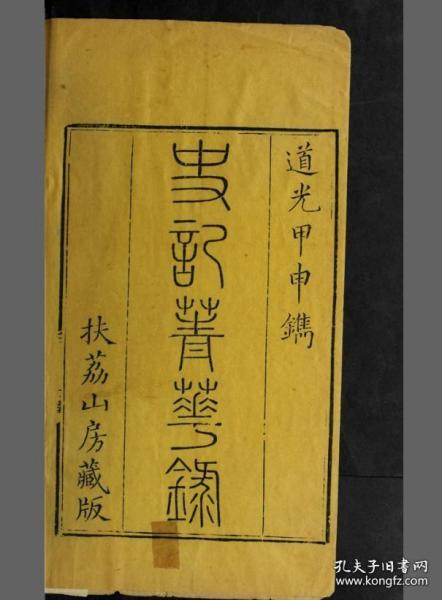 道光甲申鐫
史記菁華錄
扶荔山房藏版
孔夫子旧书网
www.kongfz.com